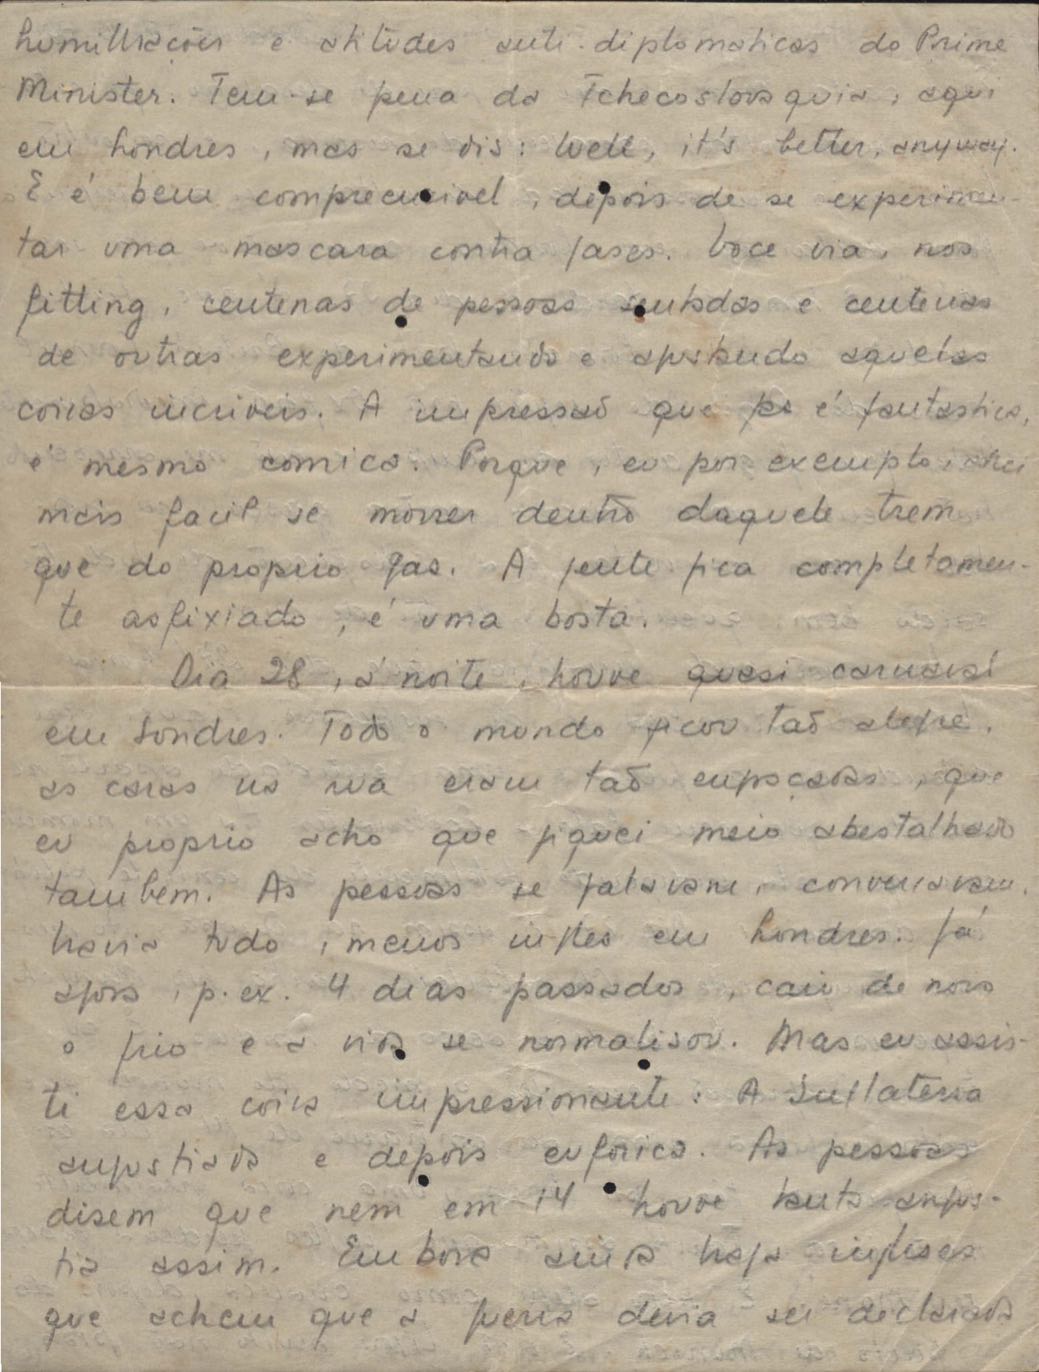 humilhações e atitudes anti-diplomaticas do Prime
Minister. Tem-se pena da Tchecoslovaquia, aqui
em Londres, mas se dis: Well, it's better, anyway.
E é bem compreensivel, depois de se experimen-
tar uma mascara contra gases. Voce via, nos
fitting, centenas de pessoas sentadas e centenas
de outras experimentando e ajustando aquelas
coisas incriveis. A impressaõ que é fantastica,
é mesmo comica. Porque, eu por exemplo, achei
mais facil se morrer dentro daquele trem
que do proprio gas. A gente fica completamen-
te asfixiado, é uma bosta.
Dia 28, á noite, houve quasi carnaval
em Londres. Todo o mundo ficou taõ alegre,
as caras na rua eram taõ engraçadas, que
eu proprio acho que fiquei meio abestalhado
tambem. As pessoas se falavam, conversavam,
havia tudo, menos ingles em Londres. Já
agora, p. ex. 4 dias passados, caiu de novo
o frio e a vida se normalisou. Mas eu assis-
ti essa coisa impressionante: A Inglaterra
angustiada e depois euforica. As pessoas
disem que nem em 14 houve tanta angus-
tia assim. Embora ainda haja ingleses
que achem que a guerra devia ser declarada